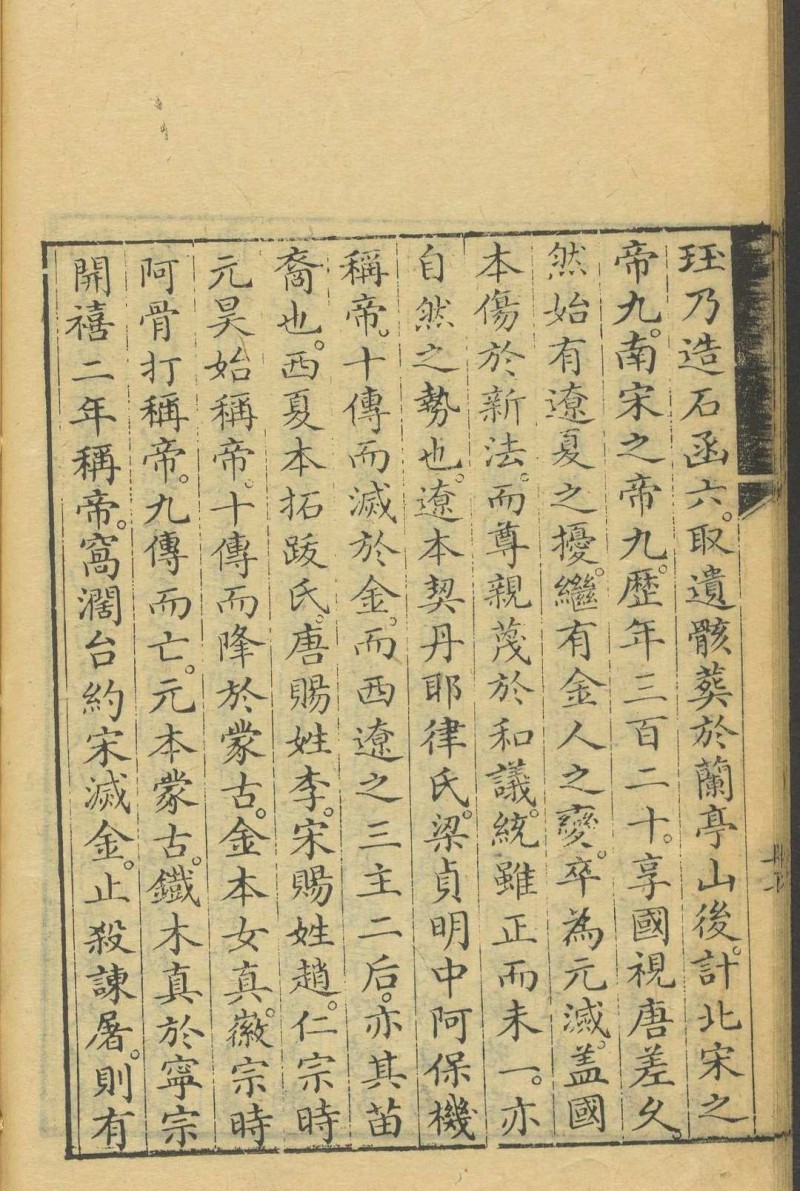 珏乃造石函六。取遺骸葬於蘭亭山後。計北宋之
帝九。南宋之帝九。歷年三百二十。享國視唐差久。
然始有遼夏之擾。繼有金人之變。卒為元滅。蓋國
本傷於新法。而尊親蔑於和議。統雖正而未一。亦
自然之勢也。遼本契丹耶律氏。梁貞明中阿保機
稱帝。十傳而滅於金。而西遼之三主二后。亦其苗
裔也。西夏本拓跋氏。唐賜姓李。宋賜姓趙。仁宗時
元昊始稱帝。十傳而降於蒙古。金本女真。徽宗時
阿骨打稱帝。九傳而亡。元本蒙古。鐵木真於寧宗
開禧二年稱帝。窩濶台約宋滅金。止殺諫屠。則有